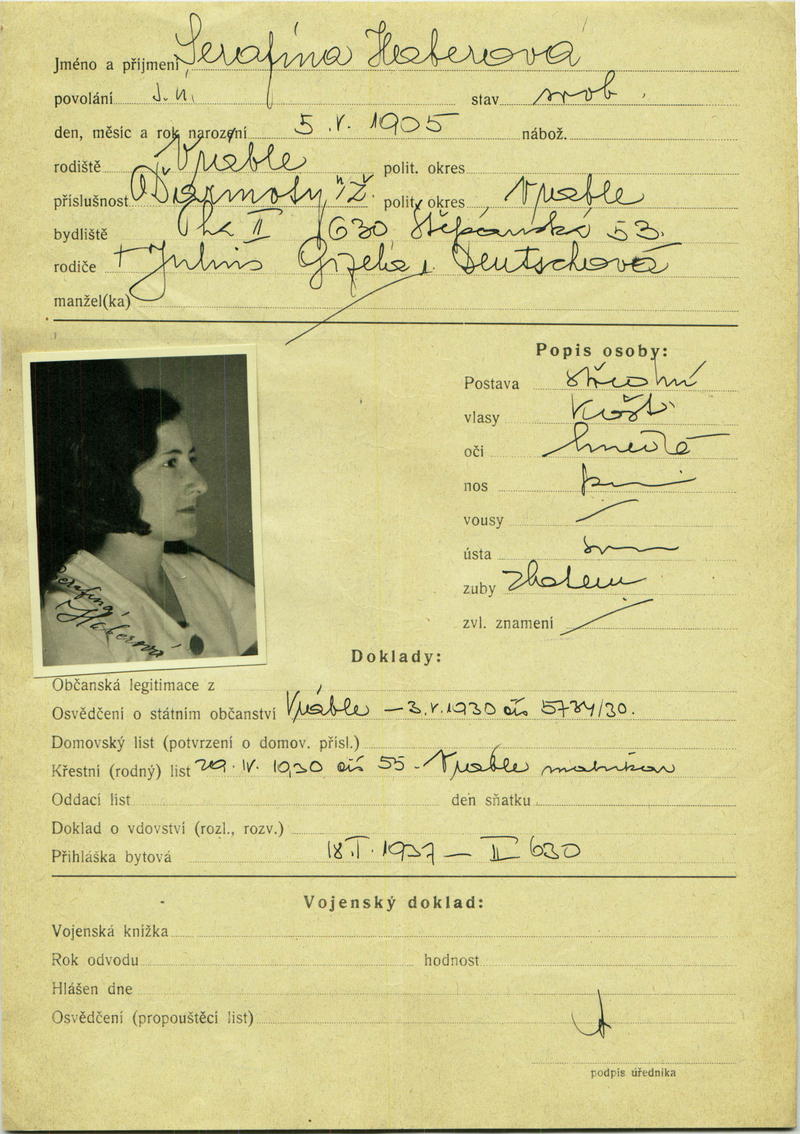 Jméno a příjmení Serafína Haberová
povolání stav svob.
den, měsíc a rok narození 5. V. 1905 nábož.
rodiště Vráble polit. okres
příslušnost polit. okres Vráble
bydliště II 630 Štěpánská 53.
rodiče + Julius Gizela r. Deutschová
manžel(ka)
Popis osoby:
Postava střední
vlasy
oči hnědé
nos
vousy
ústa
zuby
zvl. znamení
Serafína
Haberová
Doklady:
Občanská legitimace z
Osvědčení o státním občanství Vráble – 3. V. 1930 čís 5734/30.
Domovský list (potvrzení o domov. přísl.)
Křestní (rodný) list 29. IV. 1930 čís 55 - Vráble
Oddací list den sňatku
Doklad o vdovství (rozl., rozv.)
Přihláška bytová 18. I. 1937 — II 630
Vojenský doklad:
Vojenská knížka
Rok odvodu hodnost
Hlášen dne
Osvědčení (propouštěcí list)
podpis úředníka